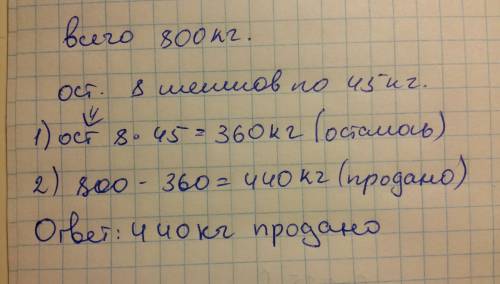 всего 800кг.
ост. 8 мешков по 45кг.
1) ост 8 · 45 = 360кг (осталось)
2) 800 - 360 = 440кг (продано)
Ответ: 440кг продано